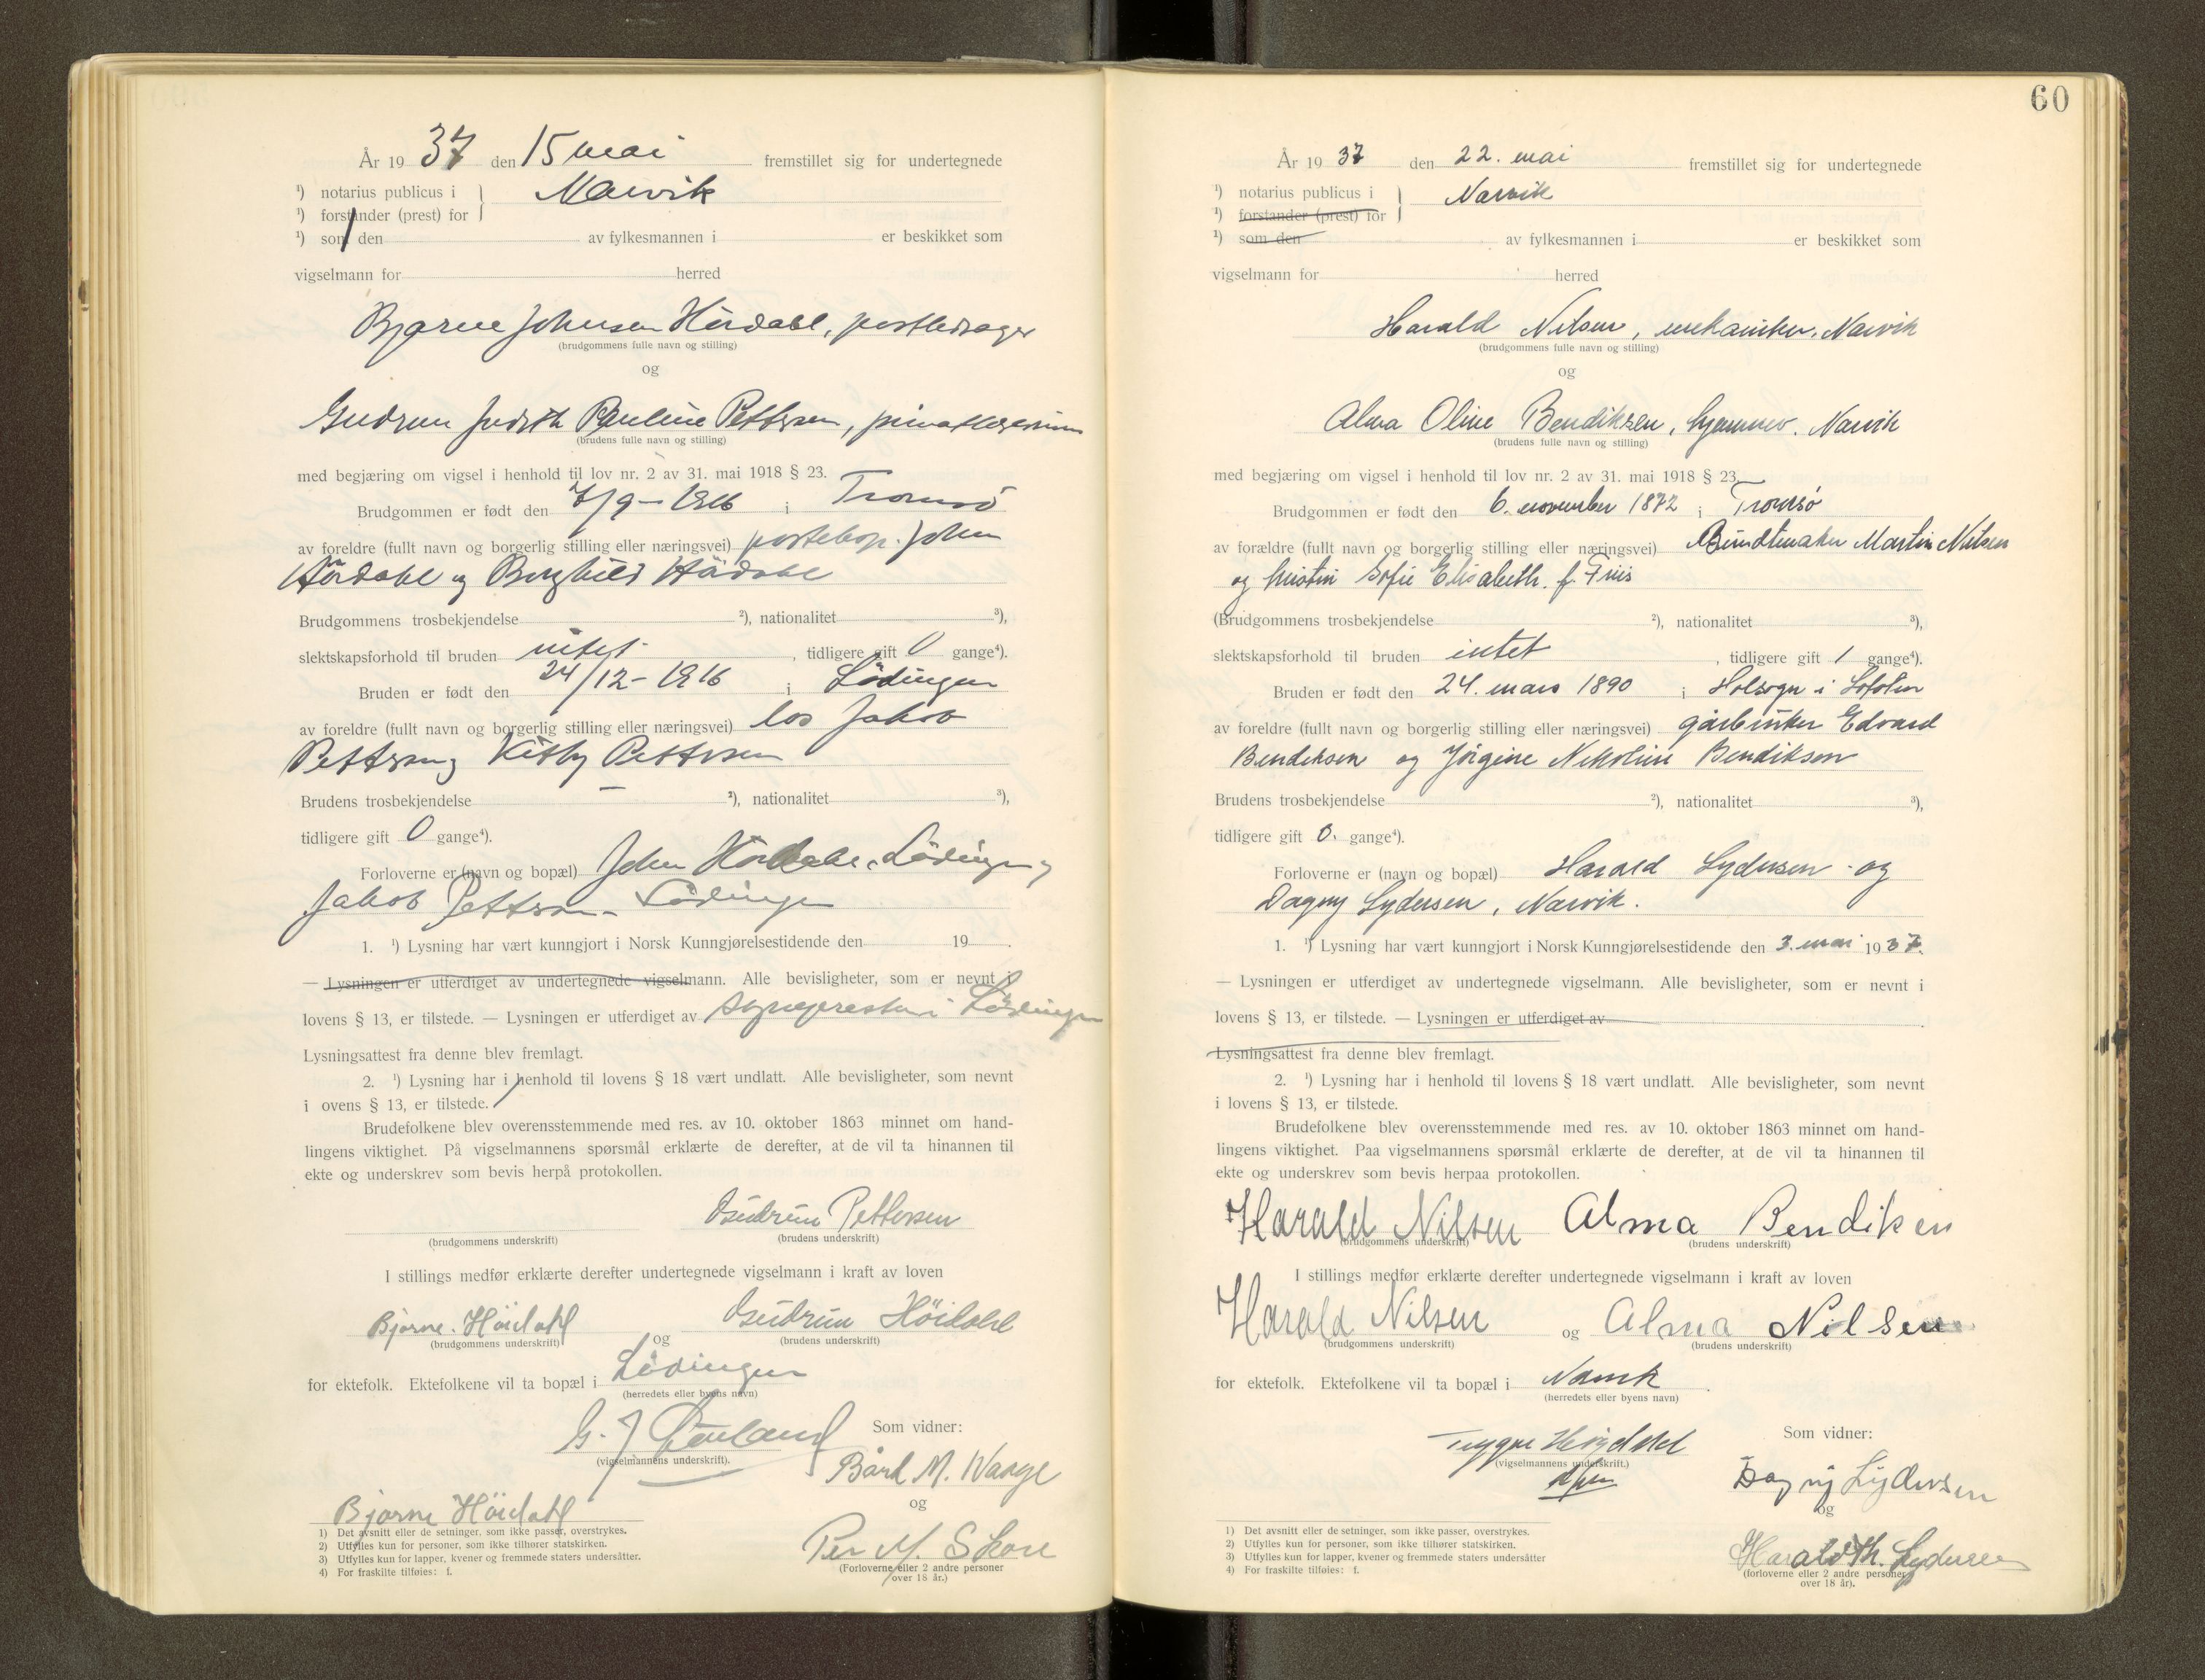 År 1937 den 15 mai fremstillet sig for undertegnede
¹) notarius publicus i } Narvik
¹) forstander (prest) for
¹) som den av fylkesmannen i er beskikket som
vigselmann for herred
Bjarne Johnsen Höidahl, postbedrager
(brudgommens fulle navn og stilling)
og
Gudrun Judith Pauline Pettersen,
(brudens fulle navn og stilling)
med begjæring om vigsel i henhold til lov nr. 2 av 31. mai 1918 § 23.
Brudgommen er født den 7/9-1916 i Tromsö
av foreldre (fullt navn og borgerlig stilling eller næringsvei) John
Höidahl og Borghild Höidahl
Brudgommens trosbekjendelse ²), nationalitet ³),
slektskapsforhold til bruden intet. , tidligere gift 0 gange⁴).
Bruden er født den 24/12-1916 i Lödingen
av foreldre (fullt navn og borgerlig stilling eller næringsvei) los Jakob
Pettersen og Kitty Pettersen
Brudens trosbekjendelse ²), nationalitet ³),
tidligere gift 0 gange⁴).
Forloverne er (navn og bopæl) John Höidahl, Lödingen og
Jakob Pettersen - Lödingen
1. ¹) Lysning har vært kunngjort i Norsk Kunngjørelsestidende den 19 .
— Lysningen er utferdiget av undertegnede vigselmann. Alle bevisligheter, som er nevnt i
lovens § 13, er tilstede. — Lysningen er utferdiget av sognepresten i Lödingen
Lysningsattest fra denne blev fremlagt.
2. ¹) Lysning har i henhold til lovens § 18 vært undlatt. Alle bevisligheter, som nevnt
i ovens § 13, er tilstede.
Brudefolkene blev overensstemmende med res. av 10. oktober 1863 minnet om hand-
lingens viktighet. På vigselmannens spørsmål erklærte de derefter, at de vil ta hinannen til
ekte og underskrev som bevis herpå protokollen.
Gudrun Pettersen
(brudgommens underskrift) (brudens underskrift)
I stillings medfør erklærte derefter undertegnede vigselmann i kraft av loven
Bjarne. Höidahl og Gudrun Höidahl
(brudgommens underskrift) (brudens underskrift)
for ektefolk. Ektefolkene vil ta bopæl i Lödingen
(herredets eller byens navn)
G. J.
Som vidner:
(vigselmannens underskrift).
Bård M. Waage
og
Bjarne Höidahl
Per M. Skore
(Forloverne eller 2 andre personer
over 18 år.)
1) Det avsnitt eller de setninger, som ikke passer, overstrykes.
2) Utfylles kun for personer, som ikke tilhører statskirken.
3) Utfylles kun for lapper, kvener og fremmede staters undersåtter.
4) For fraskilte tilføies: f.
60
År 1937 den 22. mai fremstillet sig for undertegnede
¹) notarius publicus i } Narvik
¹) forstander (prest) for
¹) som den av fylkesmannen i er beskikket som
vigselmann for herred
Harald Nilsen, mekaniker, Narvik
(brudgommens fulle navn og stilling)
og
Alma Oline Bendiksen, Narvik
(brudens fulle navn og stilling)
med begjæring om vigsel i henhold til lov nr. 2 av 31. mai 1918 § 23
Brudgommen er født den 6. november 1872 i Tromsø
av forældre (fullt navn og borgerlig stilling eller næringsvei) Bundtmaker Martin Nilsen
og hustru Sofie Elisabeth. f. Friis
(Brudgommens trosbekjendelse ²), nationalitet ³),
slektskapsforhold til bruden intet , tidligere gift 1 gange⁴).
Bruden er født den 24. mars 1890 i Holsogn i Lofoten
av foreldre (fullt navn og borgerlig stilling eller næringsvei) gårbruker Edvard
Bendiksen og Jörgine Nikoline Bendiksen
Brudens trosbekjendelse ²), nationalitet ³),
tidligere gift 0. gange⁴).
Forloverne er (navn og bopæl) Harald Lydersen - og
Dagny Lydersen, Narvik.
1. ¹) Lysning har vært kunngjort i Norsk Kunngjørelsestidende den 3. mai 1937.
— Lysningen er utferdiget av undertegnede vigselmann. Alle bevisligheter, som er nevnt i
lovens § 13, er tilstede. — Lysningen er utferdiget av .
Lysningsattest fra denne blev fremlagt.
2. ¹) Lysning har i henhold til lovens § 18 vært undlatt. Alle bevisligheter, som nevnt
i lovens § 13, er tilstede.
Brudefolkene blev overensstemmende med res. av 10. oktober 1863 minnet om hand-
lingens viktighet. Paa vigselmannens spørsmål erklærte de derefter, at de vil ta hinannen til
ekte og underskrev som bevis herpaa protokollen.
Harald Nilsen Alma Bendiksen
(brudgommens underskrift) (brudens underskrift)
I stillings medfør erklærte derefter undertegnede vigselmann i kraft av loven
Harald Nilsen og Alma Nilsen
(brudgommens underskrift) (brudens underskrift)
for ektefolk. Ektefolkene vil ta bopæl i Narvik .
(herredets eller byens navn)
Trygve
Som vidner:
(vigselmannens underskrift.)
Dagny Lydersen
og
Harald Th. Lydersen
(forloverne eller 2 andre personer
over 18 år).
1) Det avsnitt eller de setninger, som ikke passer, overstrykes.
2) Utfylles kun for personer, som ikke tilhører statskirken.
3) Utfylles kun for lapper, kvener og fremmede staters undersåtter
4) For fraskilte tilføies: f.